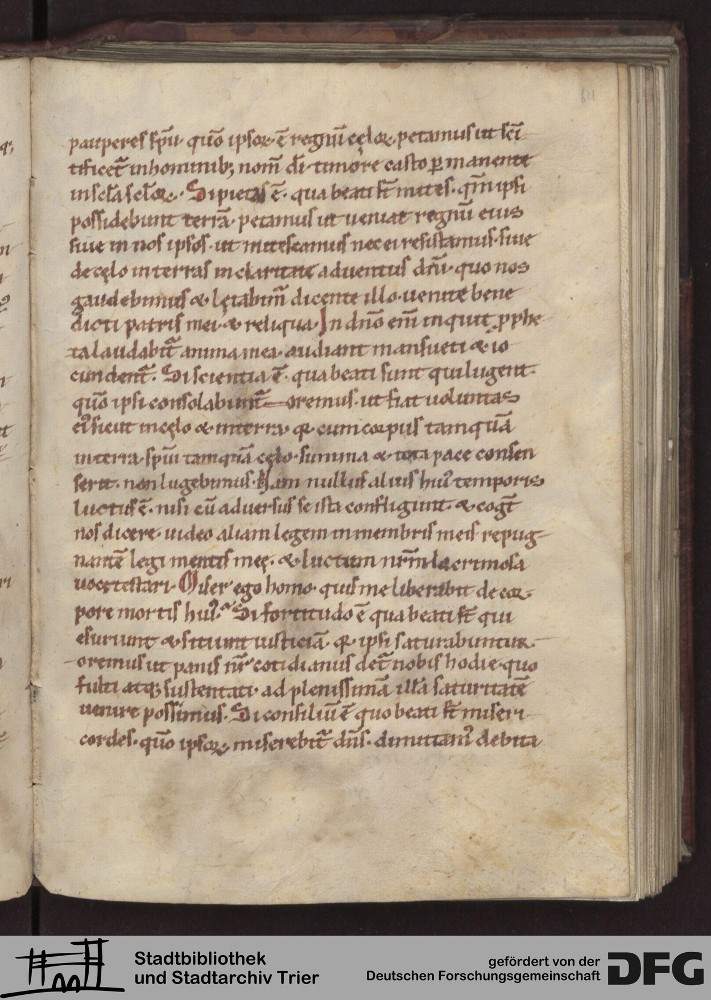 pauperes spū quō ipsoꝝ ē regnū cęloꝝ petamus ut scī
tificet᷑ in hominib; nom̄ dī timore casto ꝑmanente
in scl̄a scl̄oꝝ. Si pietas ē qua beati st̄ mites. qm̄ ipsi
possidebunt terrā petamus ut ueniat regnū eius
siue in nos ipsos ut mitescamus nec ei resistamus. siue
de cęlo in terras in claritate aduentus dn̄i. quo nos
gaudebimus & lętabim᷑ dicente illo. uenite bene
dicti patris mei. & reliqua. In dn̄o em̄ inquit ꝓphe
ta laudabit᷑ anima mea. audiant mansueti & io
cundent᷑. Si scientia ē. qua beati sunt qui lugent.
quō ipsi consolabunt᷑ oremus. ut fiat uoluntas
ei᷒ sicut in cęlo & in terra. qꝛ cum corpus tamquā
in terra. spūi tamquā cęlo. summa & tota pace consen
serit. non lugebimus. Nam nullus alius hui᷒ temporis
luctus ē. nisi cū aduersus se ista confligunt. & cogt᷑
nos dicere. uideo aliam legem in membris meis repug
nantē legi mentis meę. & luctum nr̄m lacrimosa
uoce testari. Miser ego homo. quis me liberabit de cor
pore mortis hui᷒. Si fortitudo ē qua beati st̄ qui
esuriunt & sitiunt iusticiā. qꝛ ipsi saturabuntur.
oremus ut panis nr̄ cotidianus det᷑ nobis hodie. quo
fulti atq; sustentati. ad plenissimā illā saturitatē
uenire possimus. Si consiliū ē quo beati st̄ miseri
cordes. quō ipsoꝝ miserebit᷑ dn̄s. dimittam᷒ debita
Stadtbibliothek
und Stadtarchiv Trier
gefördert von der
Deutschen Forschungsgemeinschaft
DFG